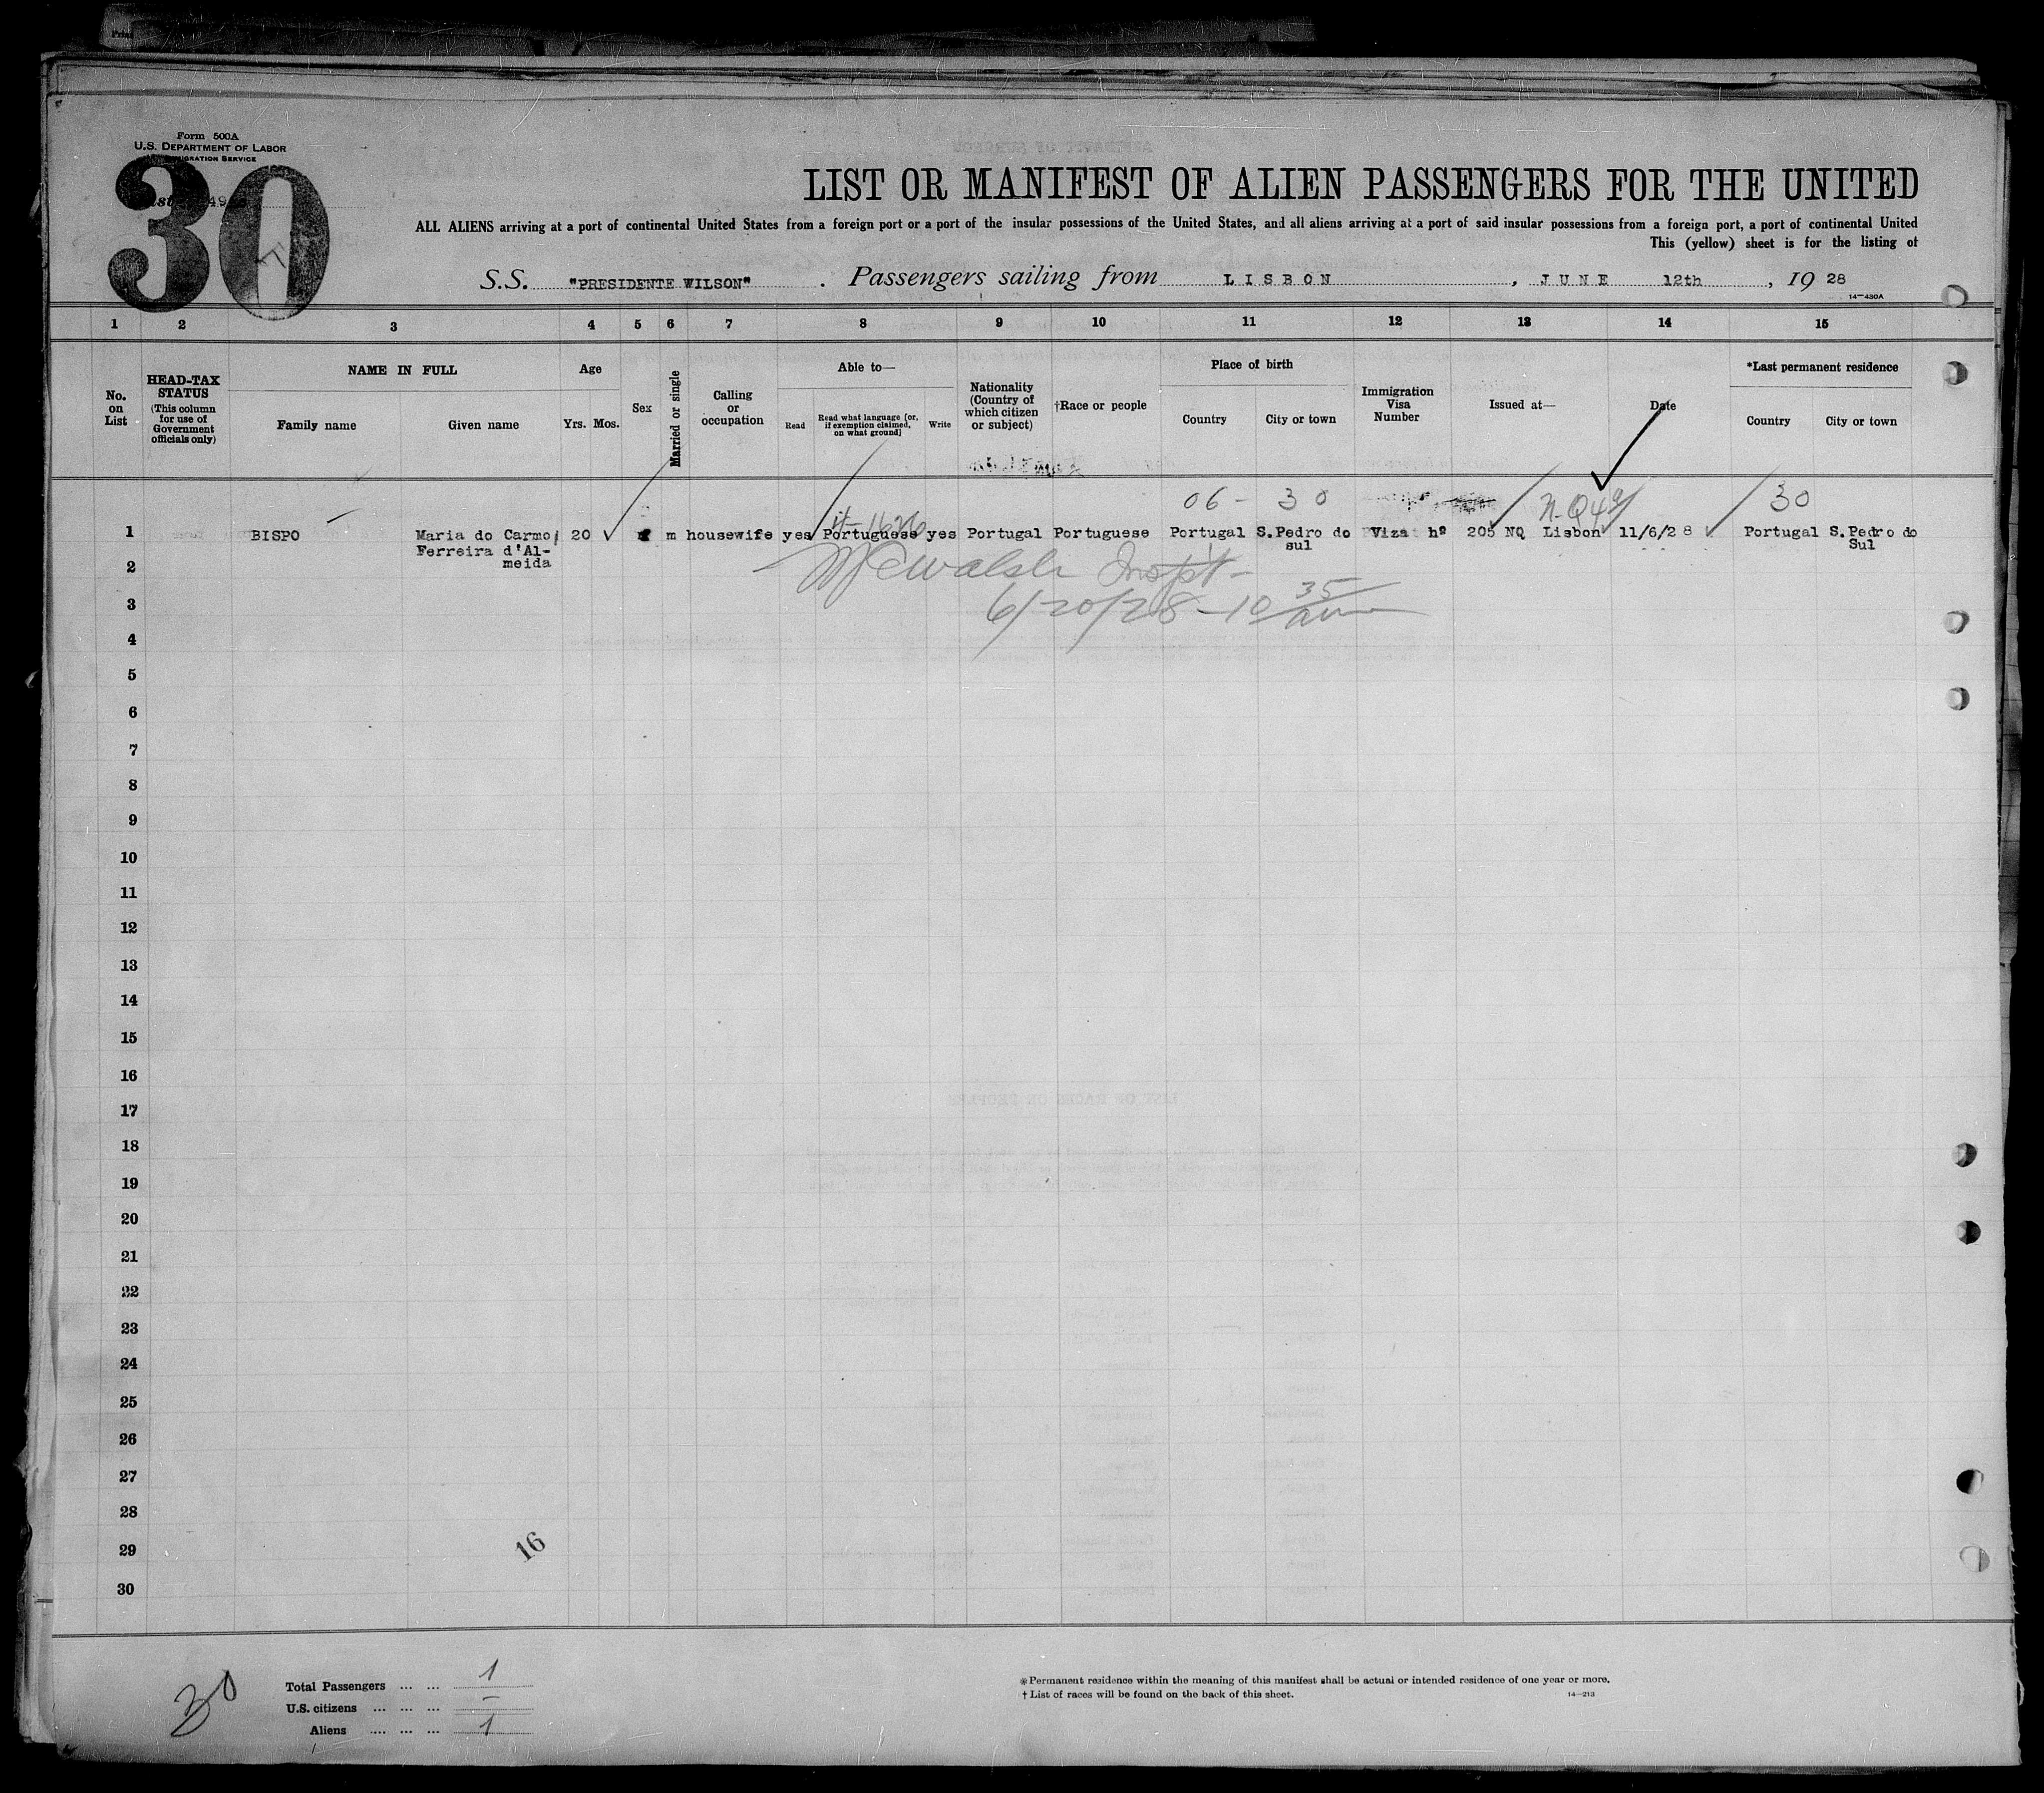 Form 500A
U.S. DEPARTMENT OF LABOR
IMMIGRATION SERVICE
30
LIST OR MANIFEST OF ALIEN PASSENGERS FOR THE UNITED
ALL ALIENS arriving at a port of continental United States from a foreign port or a port of the insular possessions of the United States, and all aliens arriving at a port of said insular possessions from a foreign port, a port of continental United
This (yellow) sheet is for the listing of
S.S. "PRESIDENTE WILSON". Passengers sailing from LISBON, JUNE 12th, 1928
14—430A
1 2 3 4 5 6 7 8 9 10 11 12 13 14 15
No. on List
HEAD-TAX STATUS
(This column for use of Government officials only)
NAME IN FULL
Family name Given name
Age
Yrs. Mos.
Sex
Married or single
Calling or occupation
Able to—
Read
Read what language [or, if exemption claimed, on what ground]
Write
Nationality (Country of which citizen or subject)
†Race or people
Place of birth
Country City or town
Immigration Visa Number
Issued at—
Date
*Last permanent residence
Country City or town
06 - 30 30
1 BISPO Maria do Carmo 20 m housewife yes Portuguese yes Portugal Portuguese Portugal S.Pedro do Viza hº 205 NQ Lisbon 11/6/28 Portugal S.Pedro do
Ferreira d'Al- sul Sul
meida
Walsh Inspt-
6/20/28 - 10 35 am
2
3
4
5
6
7
8
9
10
11
12
13
14
15
16
17
18
19
20
21
22
23
24
25
26
27
28
29
30
16
30
Total Passengers ... ... 1
U.S. citizens ... ... ... –
Aliens .... ... ... 1
*Permanent residence within the meaning of this manifest shall be actual or intended residence of one year or more.
†List of races will be found on the back of this sheet.
14—213